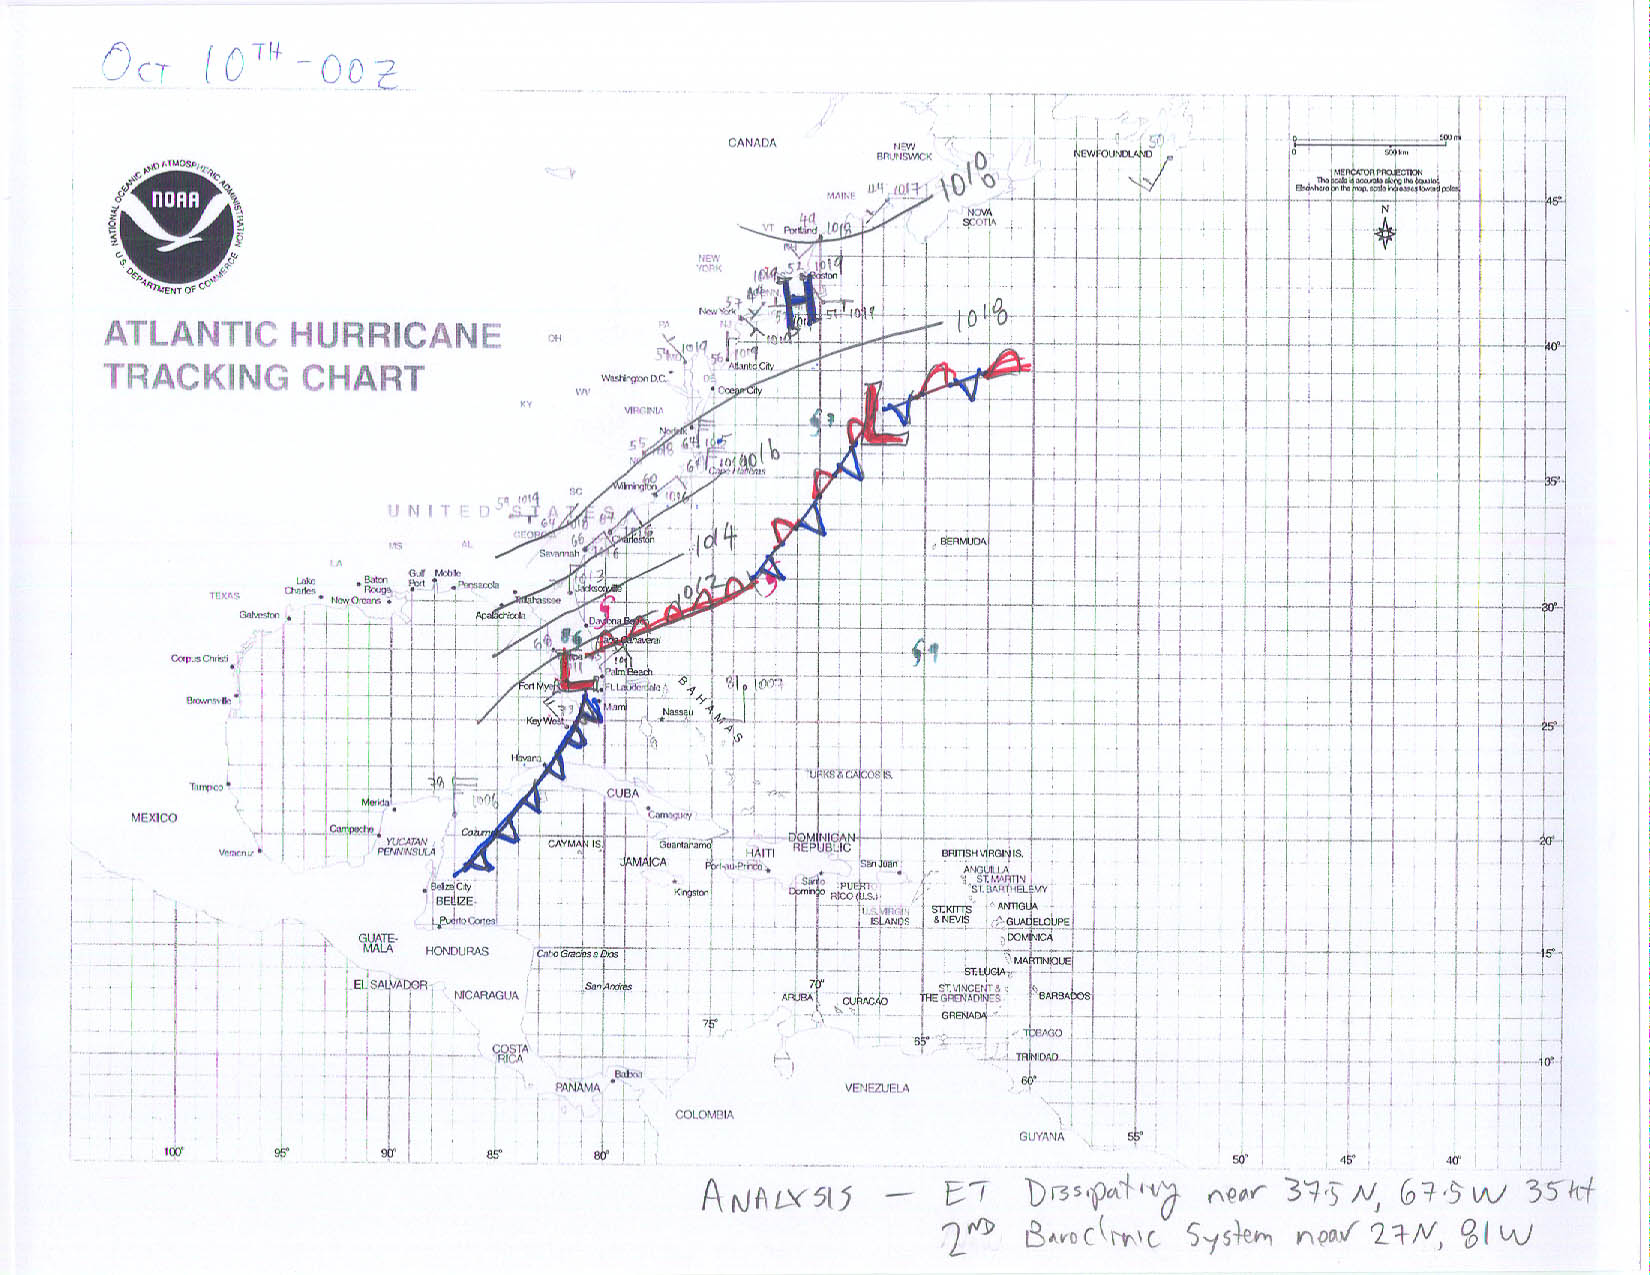 OCT 10TH - 00Z
NATIONAL OCEANIC AND ATMOSPHERIC ADMINISTRATION
U.S. DEPARTMENT OF COMMERCE
NOAA
ATLANTIC HURRICANE
TRACKING CHART
CANADA
NEW
BRUNSWICK
NEWFOUNDLAND
50
500 mi
0
500 km
MERCATOR PROJECTION
The scale is accurate along the equator.
Elsewhere on the map, scale increases toward poles.
N
45°
MAINE
1017
NOVA
SCOTIA
VT
49
Portland
1018
NEW
YORK
52
1019
Boston
H
57
New York
PA
NJ
1019
56
1019
Atlantic City
1018
40°
OH
Washington D.C.
DE
Ocean City
WV
KY
VIRGINIA
Norfolk
L
55
64
1016
Cape Hatteras
35°
60
Wilmington
SC
59
1019
UNITED STATES
64
GEORGIA
66
Charleston
Savannah
1014
BERMUDA
MS
AL
LA
TEXAS
Lake
Charles
Baton
Rouge
Gulf
Port
Mobile
Pensacola
New Orleans
Jacksonville
Tallahassee
Apalachicola
1012
30°
Galveston
Daytona Beach
Cape Canaveral
68
L
Corpus Christi
Palm Beach
Fort Myers
Ft. Lauderdale
Brownsville
Miami
BAHAMAS
Nassau
Key West
25°
Havana
Tampico
78
1006
TURKS & CAICOS IS.
CUBA
MEXICO
Merida
Camaguey
Campeche
YUCATAN
PENNINSULA
Cozumel
Veracruz
CAYMAN IS.
Guantanamo
JAMAICA
HAITI
DOMINICAN
REPUBLIC
Port-au-Prince
San Juan
20°
BRITISH VIRGIN IS.
ANGUILLA
ST. MARTIN
ST. BARTHELEMY
Kingston
Santo
Domingo
PUERTO
RICO (U.S.)
Belize City
BELIZE
U.S. VIRGIN
ISLANDS
ST. KITTS
& NEVIS
ANTIGUA
GUADELOUPE
Puerto Cortes
DOMINICA
GUATE-
MALA
HONDURAS
Cabo Gracias a Dios
15°
MARTINIQUE
ST. LUCIA
EL SALVADOR
San Andres
NICARAGUA
70°
ARUBA
CURACAO
ST. VINCENT &
THE GRENADINES
BARBADOS
GRENADA
75°
65°
TOBAGO
COSTA
RICA
TRINIDAD
10°
PANAMA
Balboa
VENEZUELA
60°
COLOMBIA
GUYANA
55°
100°
95°
90°
85°
80°
50°
45°
40°
ANALYSIS - ET Dissipating near 37.5N, 67.5W 35kt
2ND Baroclinic System near 27N, 81W